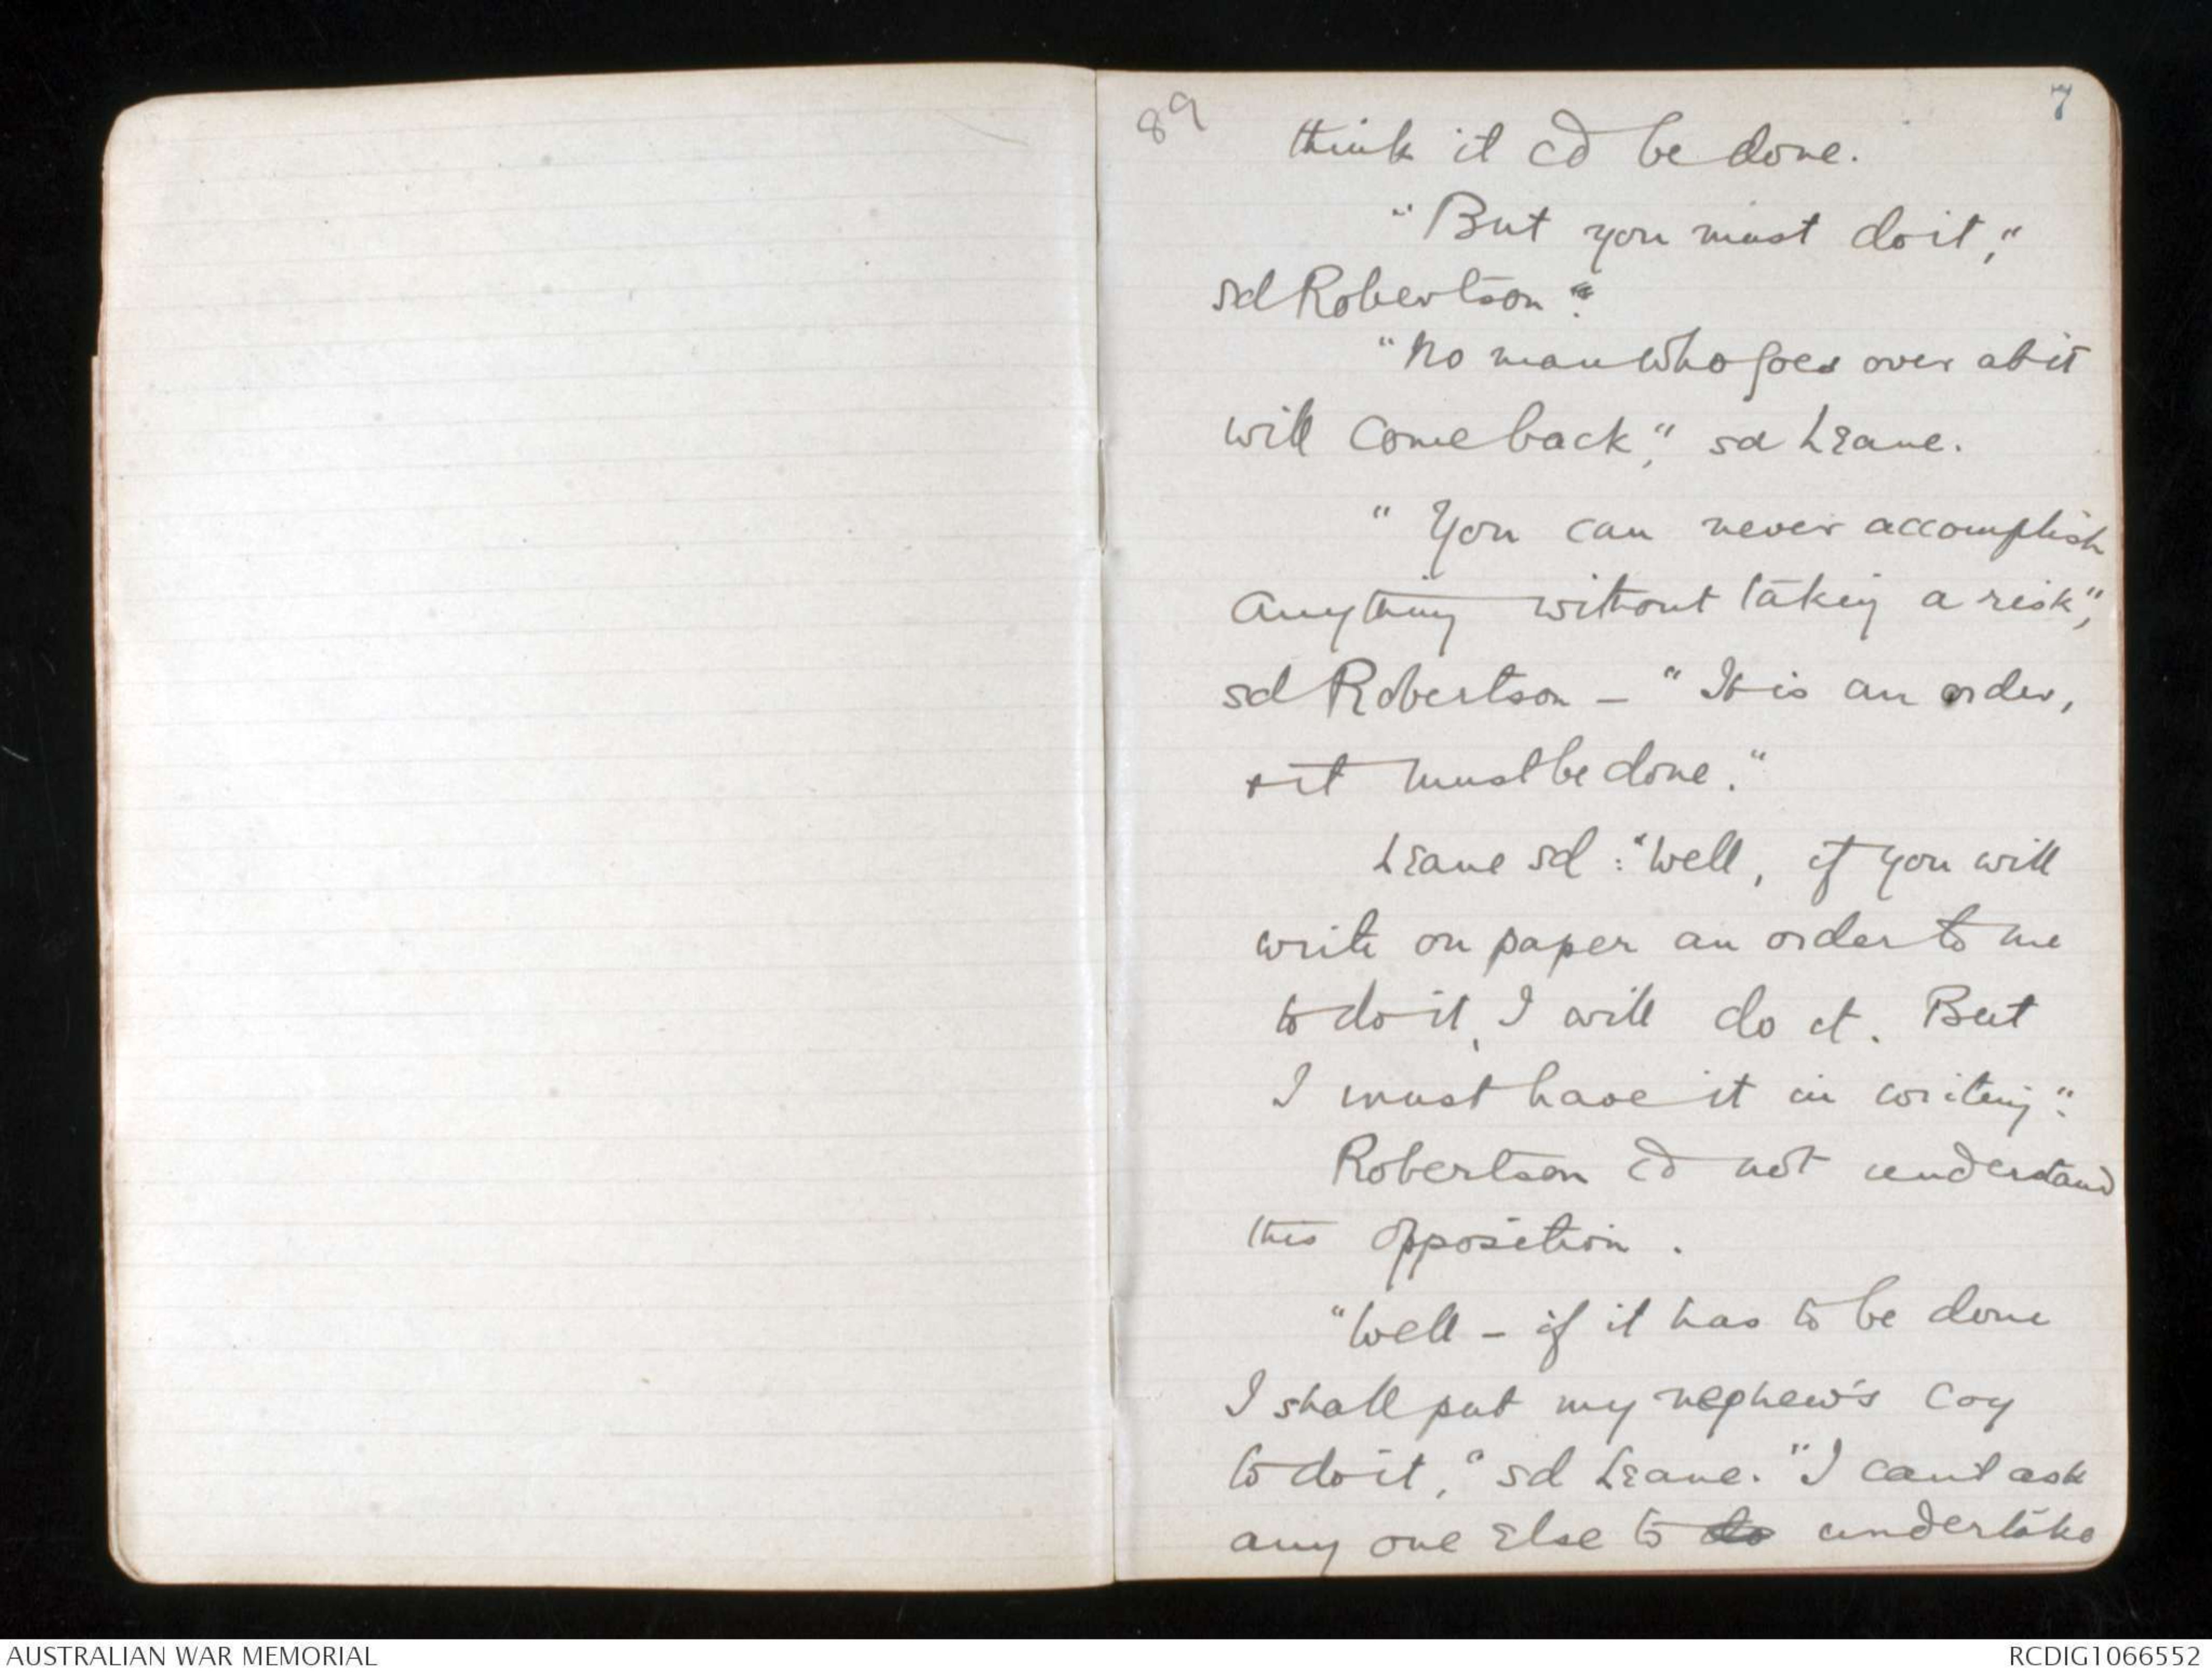 89
7
think it cd be done.
"But you must do it,"
sd Robertson".
"No man who goes over at it
will come back," sd Leane.
"You can never accomplish
anything without taking a risk",
sd Robertson – "It is an order,
& it must be done."
Leane sd: "Well, if you will
write on paper an order to me
to do it, I will do it. But
I must have it in writing".
Robertson cd not understand
this opposition.
"Well – if it has to be done
I shall put my nephew's Coy
to do it," sd Leane. "I cant ask
any one else to do undertake
AUSTRALIAN WAR MEMORIAL
RCDIG1066552